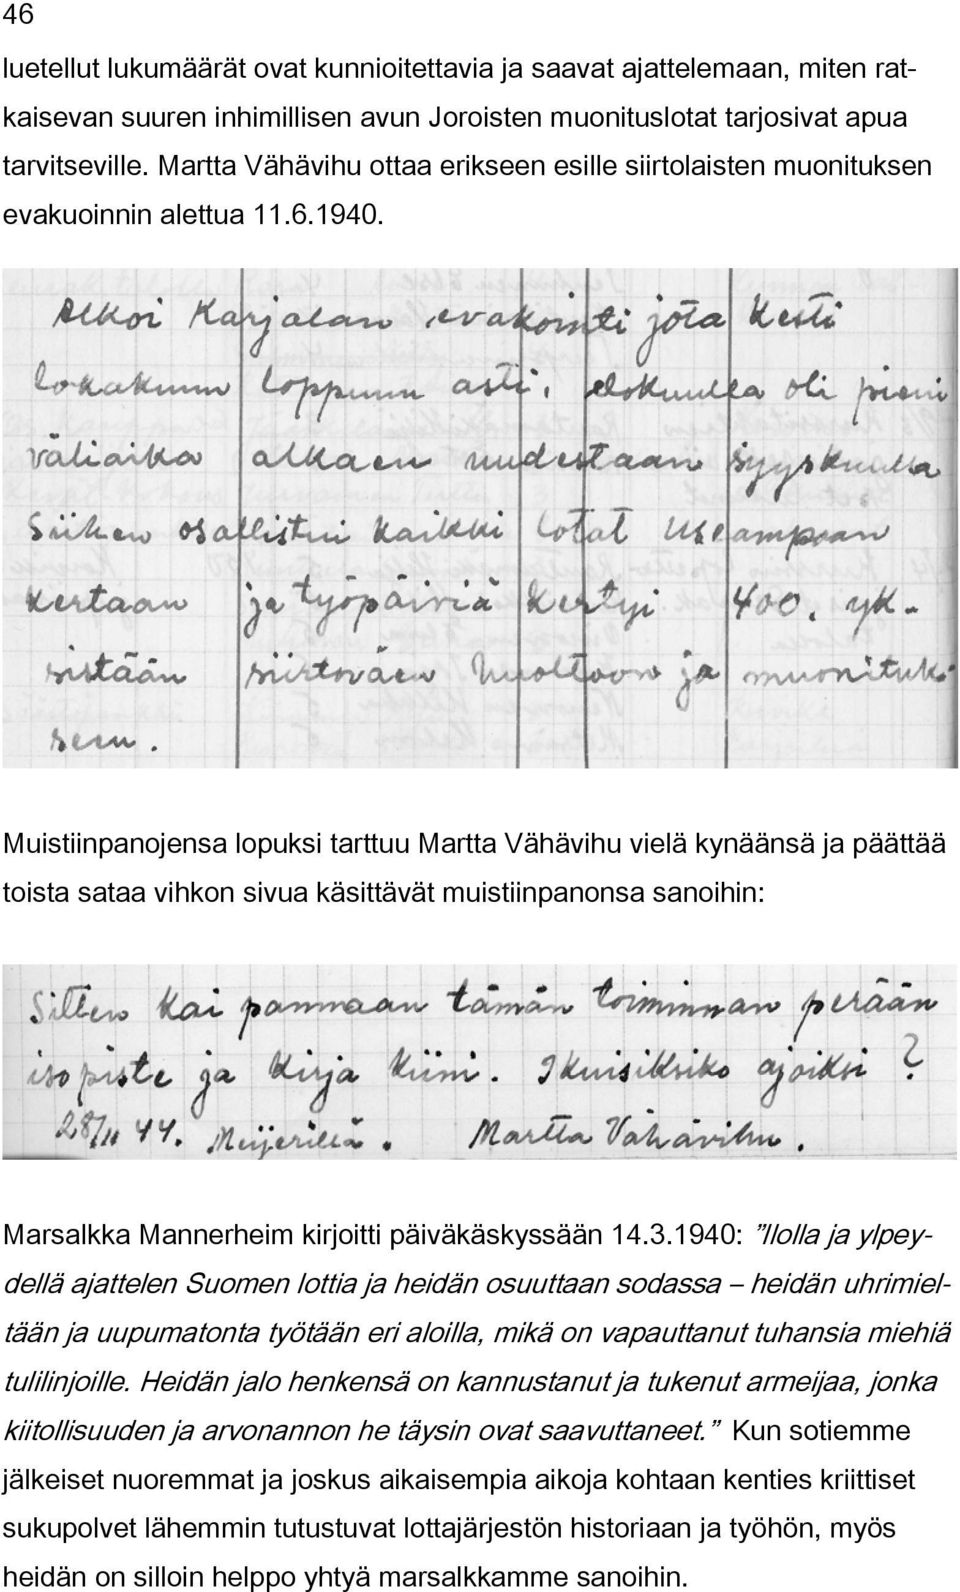 46
luetellut lukumäärät ovat kunnioitettavia ja saavat ajattelemaan, miten rat-
kaisevan suuren inhimillisen avun Joroisten muonituslotat tarjosivat apua
tarvitseville. Martta Vähävihu ottaa erikseen esille siirtolaisten muonituksen
evakuoinnin alettua 11.6.1940.
Alkoi Karjalan evakointi jota kesti
lokakuun loppuun asti, elokuulla oli pieni
väliaika alkaen uudestaan syyskuulla
Siihen osallistui kaikki lotat useampaan
kertaan ja työpäiviä kertyi 400, yk-
sistään siirtoväen huoltoon ja muonituk-
seen.
Muistiinpanojensa lopuksi tarttuu Martta Vähävihu vielä kynäänsä ja päättää
toista sataa vihkon sivua käsittävät muistiinpanonsa sanoihin:
Sitten kai pannaan tämän toiminnan perään
iso piste ja kirja kiini. Ikuisiksiko ajoiksi?
28/11 44. Meijerillä. Martta Vähävihu.
Marsalkka Mannerheim kirjoitti päiväkäskyssään 14.3.1940: ”Ilolla ja ylpey-
dellä ajattelen Suomen lottia ja heidän osuuttaan sodassa – heidän uhrimiel-
tään ja uupumatonta työtään eri aloilla, mikä on vapauttanut tuhansia miehiä
tulilinjoille. Heidän jalo henkensä on kannustanut ja tukenut armeijaa, jonka
kiitollisuuden ja arvonannon he täysin ovat saavuttaneet.” Kun sotiemme
jälkeiset nuoremmat ja joskus aikaisempia aikoja kohtaan kenties kriittiset
sukupolvet lähemmin tutustuvat lottajärjestön historiaan ja työhön, myös
heidän on silloin helppo yhtyä marsalkkamme sanoihin.